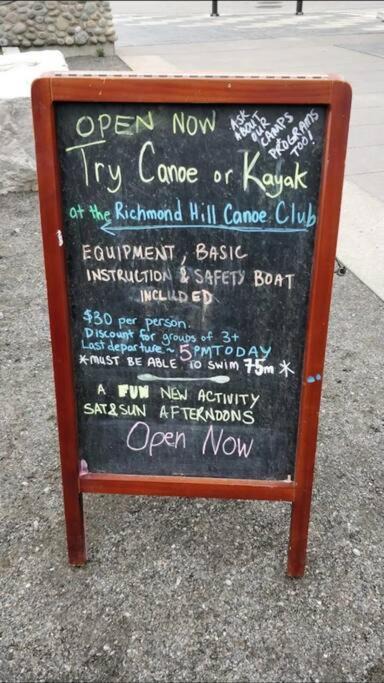 OPEN NOW
ASK
ABOUT
OUR
CAMPS
PROGRAMS
TOO!
Try Canoe or Kayak
at the Richmond Hill Canoe Club
EQUIPMENT, BASIC
INSTRUCTION & SAFETY BOAT
INCLUDED
$30 per person.
Discount for groups of 3+
Last departure ~ 5PM TODAY
*MUST BE ABLE TO SWIM 75m *
A FUN NEW ACTIVITY
SAT&SUN AFTERNOONS
Open Now